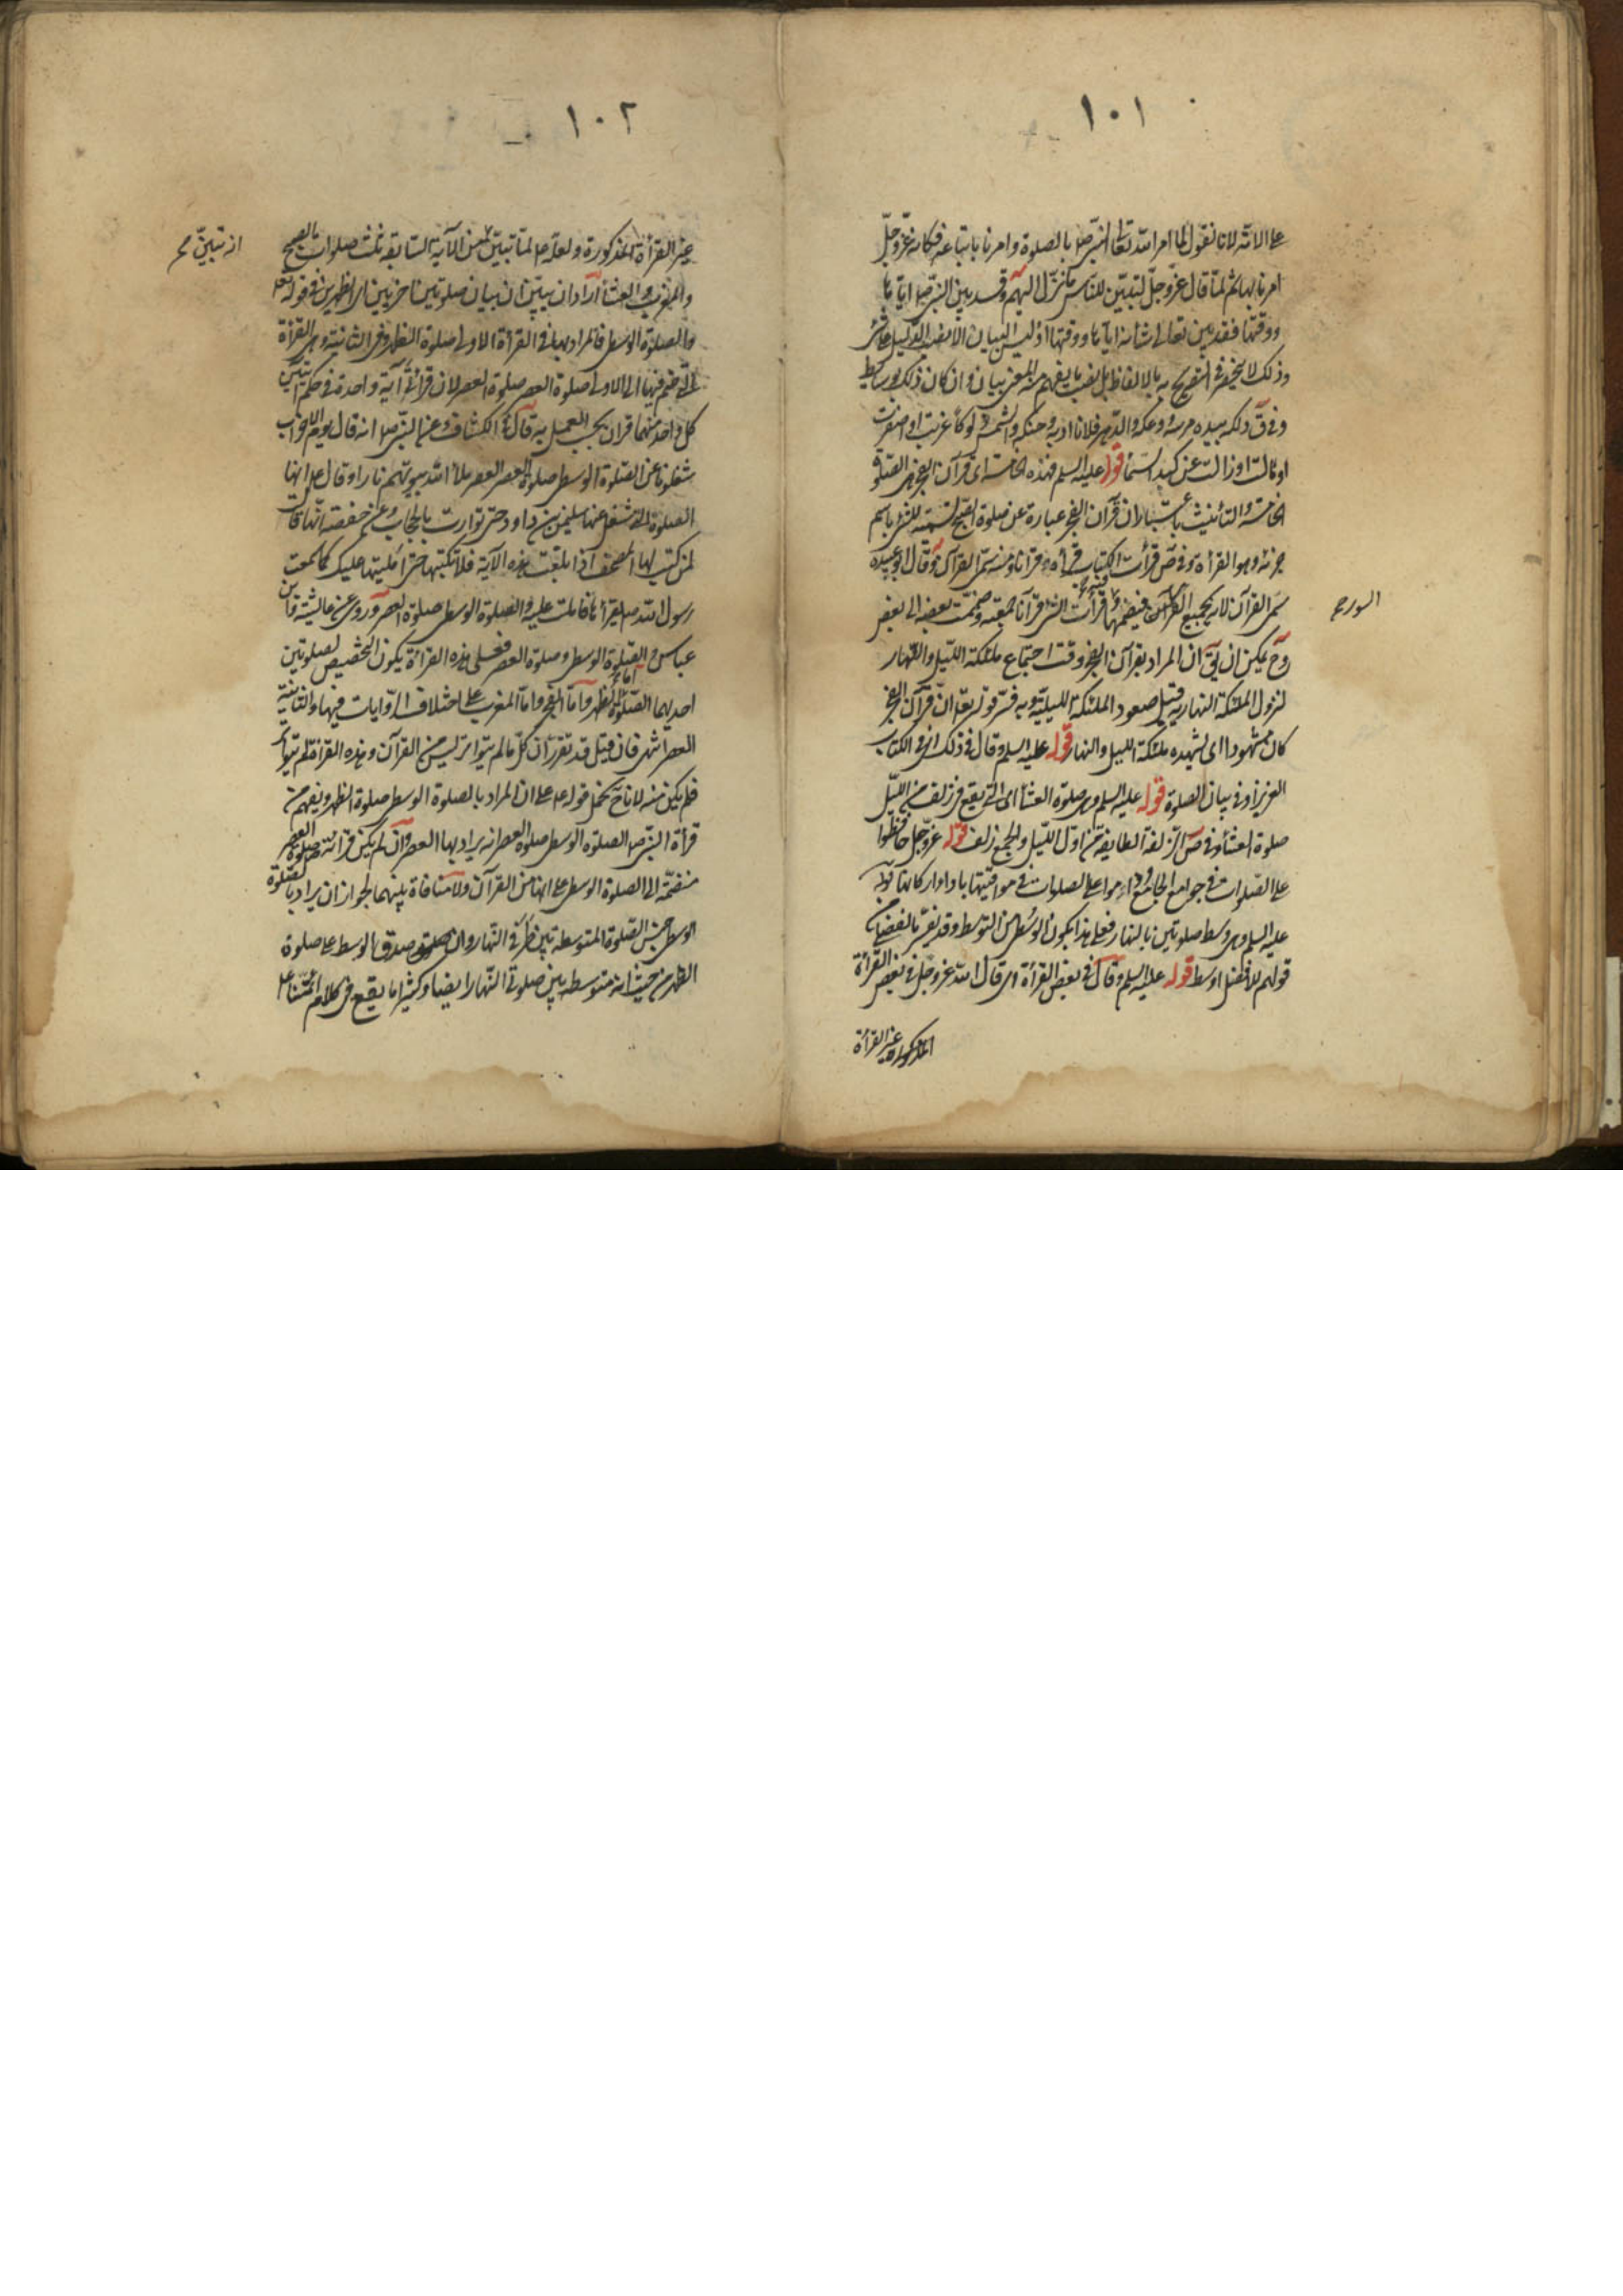 ١٠١
على الامّة لانا نقول لما امر الله تعالى النبيّ صلعم بالصلوة وامرنا باتباعه فكانه عزّ وجلّ
امرنا بها ثم لمّا قال عزّ وجلّ لتبيّن للناس ما نزّل اليهم وقد بيّن النبيّ صلعم ايّانا
ووقتها فقد بيّن تعالى شانه ايانا ووقتها اذ ليس البيان الا نصب الدليل
وذلك لا ينحصر في التصريح به بالالفاظ بل نصب ما يفهم منه المعنى بيان وان كان ذلك بوسايط
وفي ق دلكه بيده مرسه ودعكه والدّهر فلانا ادّبه وحنّكه والشمس دلوكا غربت او اصفرت
او مالت او زالت عن كبد السّماء قوله عليه السلم فهذه الخامسة اى قرآن الفجر هي الصّلوة
الخامسة والتأنيث باعتبار ان قرآن الفجر عبارة عن صلوة الصبح تسمية للشئ باسم
جزئه وهو القرأة وفي ص قرأت الكتاب قراءة وقرآنا ومنه سمّى القرآن وقال ابو عبيده
سمّى القرآن لانه يجمع السور فيضمها وقرأت الشئ قرآنا جمعته وضممت بعضه الى بعض
السور صح
وح يمكن ان يق ان المراد بقرآن الفجر وقت اجتماع ملئكة الليل والنهار
لنزول الملئكة النهارية قبل صعود الملئكة الليليّة وبه فسّر قوله تع انّ قرآن الفجر
كان مشهودا اى تشهده ملئكة الليل والنهار قوله عليه السلم وقال في ذلك اى في الكتاب
العزيز او في بيان الصلوة قوله عليه السلم هى صلوة العشاء اى التى تقع في زلف من الليل
صلوة العشاء وفي ص الزلفة الطايفة من اول الليل والجمع زلف قوله عزّ وجل حافظوا
على الصّلوات في جوامع الجامع داوموا على الصلوات في مواقيتها باداء اركانها قوله
عليه السلم وهى وسط صلوتين بالنهار فعلى هذا يكون الوسطى من التوسط وقد يفسّر بالفضلى من
قولهم للافضل اوسط قوله عليه السلم وقال في بعض القرأة اى قال الله عزوجل في بعض القرأة
غير القرأة المذكورة
١٠٢
غير القرأة المذكورة ولعله ع لمّا تبيّن من الآية السابقة ثلث صلوات الصبح
از تبيّن صح
والمغرب والعشاء اراد ان يبيّن ان بيان صلوتين اخريين اى الظهرين في قوله تعالى
والصلوة الوسطى فالمراد بها في القرأة الاولى صلوة الظهر وفي الثانية وهي القرأة
التى ضم فيها الى الاولى صلوة العصر صلوة العصر لان قرائتى آية واحدة في حكم آيتين
كل واحد منهما قرآن يجب العمل به قال في الكشاف وعن النبيّ صلعم انه قال يوم الاحزاب
شغلونا عن الصّلوة الوسطى صلوة العصر ملأ الله بيوتهم نارا وقال ع انها
الصلوة التى شغل عنها سليمن بن داود حتى توارت بالحجاب وعن حفصة انّها قالت
لمن كتب لها المصحف اذا بلغت هذه الآية فلا تكتبها حتى امليها عليك كما سمعت
رسول الله صلعم يقرأها فاملت عليه والصلوة الوسطى صلوة العصر وروى عن عائشة وابن
عباس والصّلوة الوسطى وصلوة العصر فعلى هذه القراءة يكون التخصيص لصلوتين
احديهما الصّلوة امّا الظهر وامّا الفجر وامّا المغرب على اختلاف الروايات فيها والثانية
العصر انتهى فان قيل قد تقرّر ان كلّ ما لم يتواتر ليس من القرآن وهذه القرأة لم يتواتر
فلم يكن منه لانا ح نحمل قوله ع على ان المراد بالصلوة الوسطى صلوة الظهر ويفهم من
قرأة النبيّ صلعم الصلوة الوسطى صلوة العصر انه يراد بها العصر وان لم يكن قرائة صلوة العصر
منضمّة الى الصلوة الوسطى على انها من القرآن ولا منافاة بينهما لجواز ان يراد بالصلوة
الوسطى جنس الصّلوة المتوسطة بين طرفي النهار وان صدق الوسطى على صلوة
الظهر من حيث انه متوسطه بين صلوتى النّهار ايضا وكثيرا ما يقع في كلام ائمتنا ع